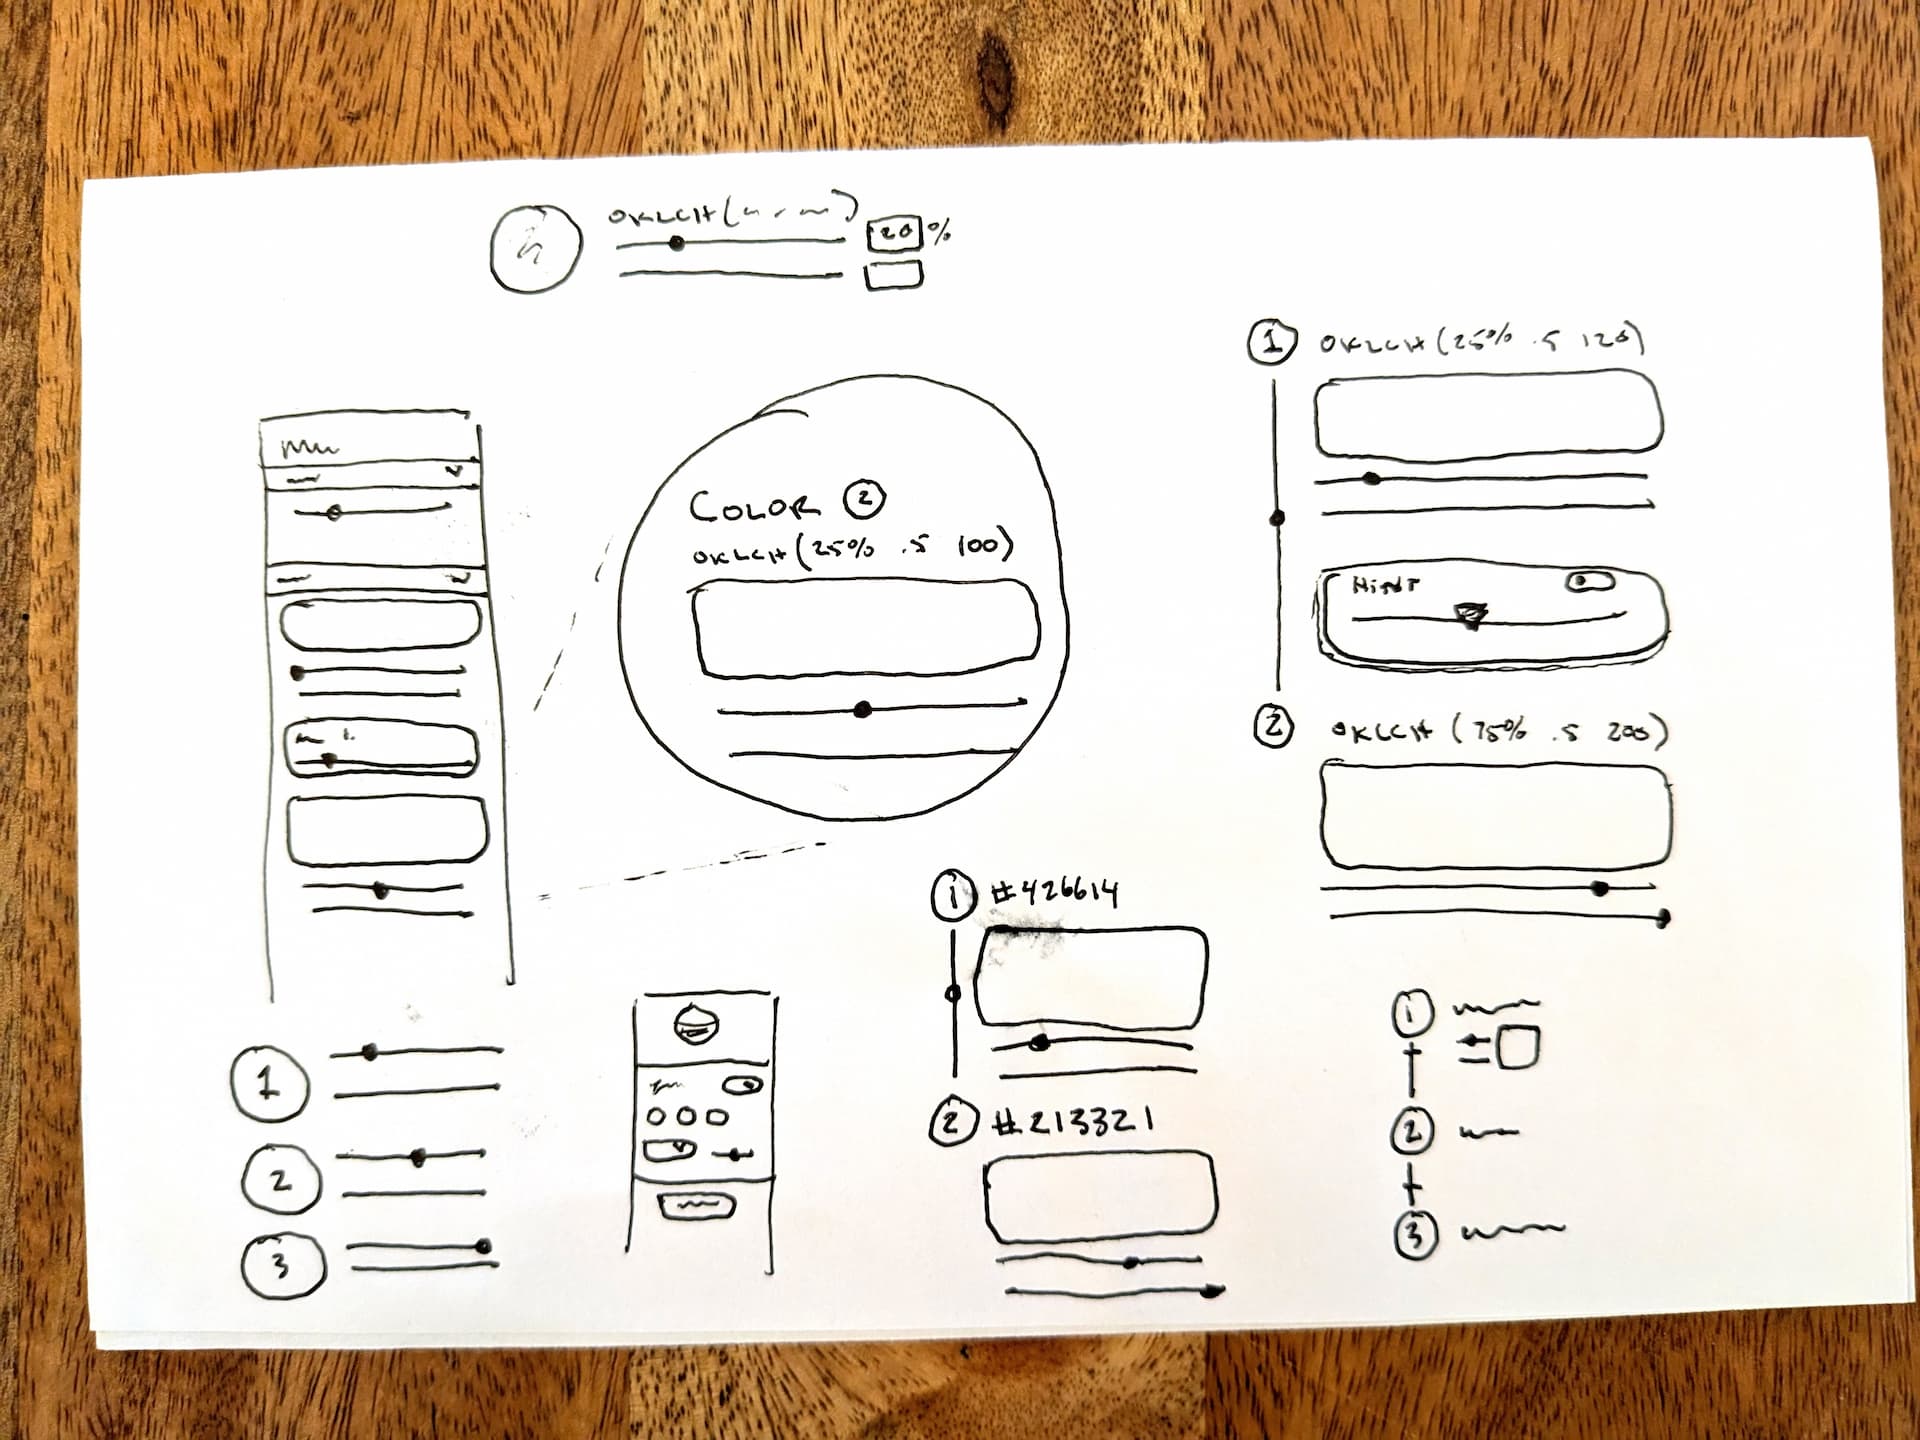 OKLCH(
20 %
1 OKLCH(25% .5 120)
COLOR 2
OKLCH(25% .5 100)
HINT
2 OKLCH (75% .5 200)
1 #426614
2 #213321
1
2
3
1
2
3